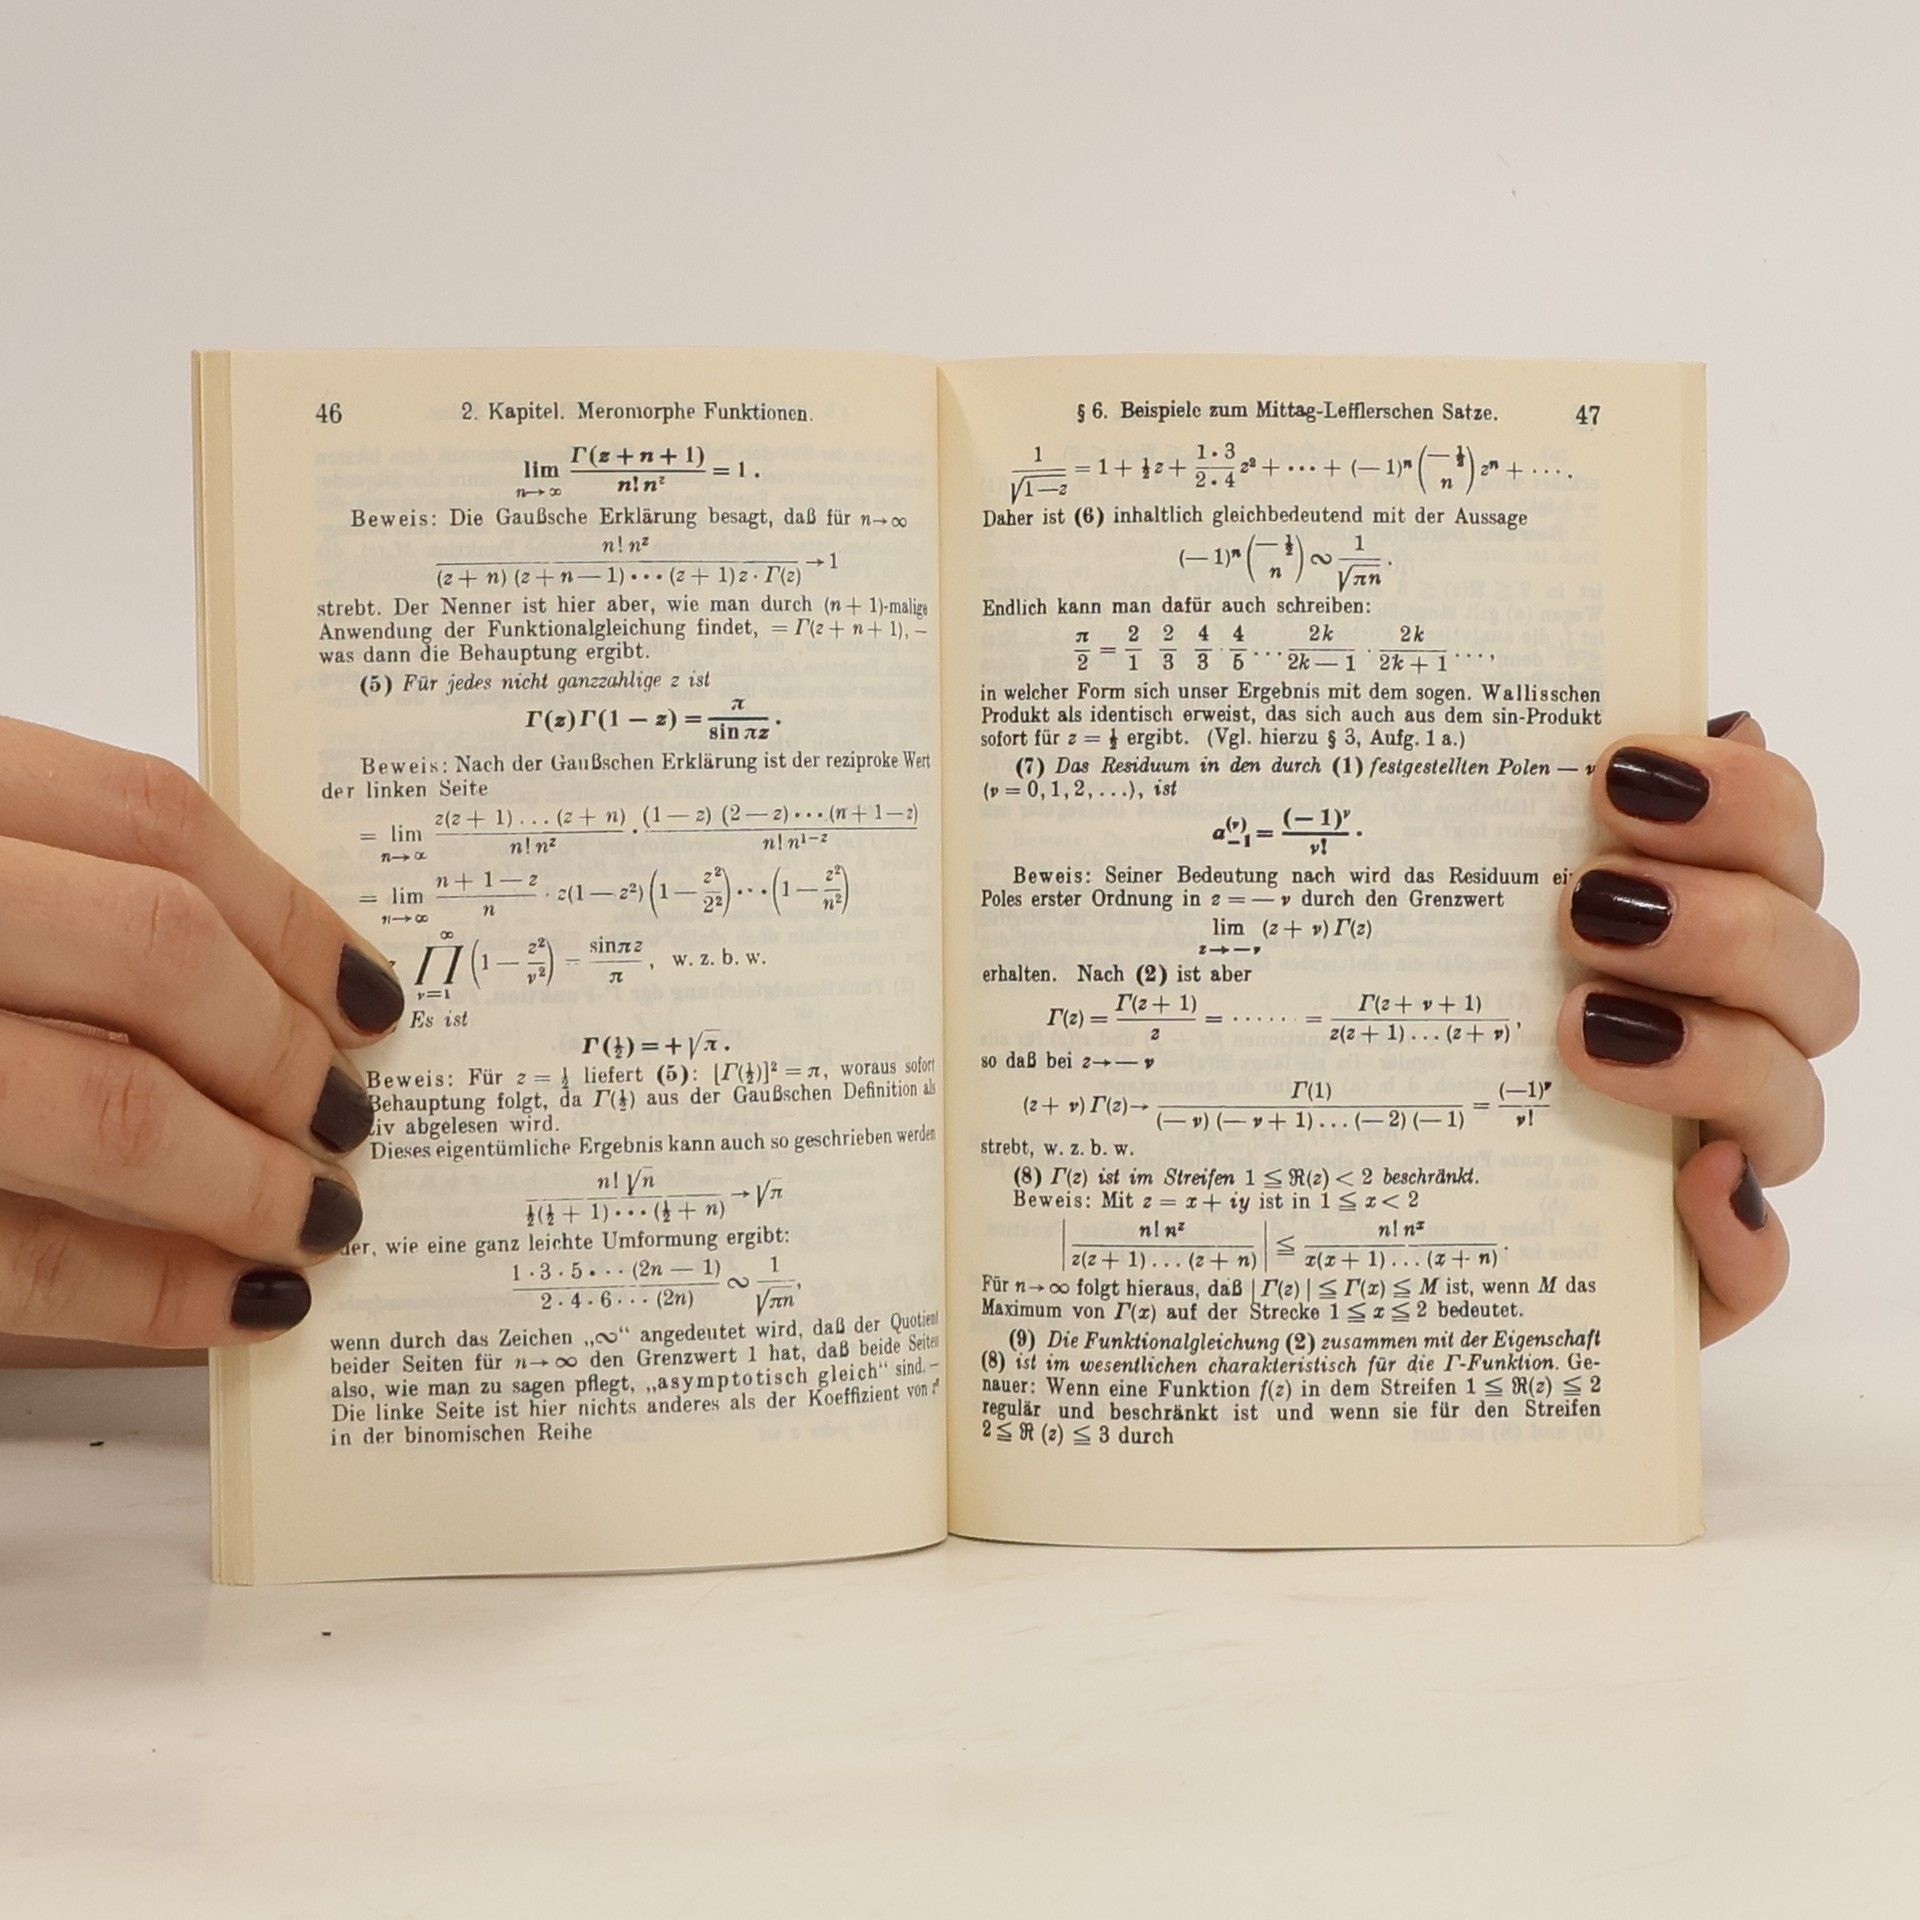 46 2. Kapitel. Meromorphe Funktionen.
lim_{n→∞} Γ(z + n + 1) / (n! n^z) = 1 .
Beweis: Die Gaußsche Erklärung besagt, daß für n→∞
n! n^z / ((z + n) (z + n — 1) ··· (z + 1) z · Γ(z)) → 1
strebt. Der Nenner ist hier aber, wie man durch (n + 1)-malige
Anwendung der Funktionalgleichung findet, = Γ(z + n + 1), –
was dann die Behauptung ergibt.
(5) Für jedes nicht ganzzahlige z ist
Γ(z) Γ(1 — z) = π / sin πz .
Beweis: Nach der Gaußschen Erklärung ist der reziproke Wert
der linken Seite
= lim_{n→∞} z(z + 1) ... (z + n) / (n! n^z) · (1 — z) (2 — z) ··· (n + 1 — z) / (n! n^{1—z})
= lim_{n→∞} (n + 1 — z) / n · z(1 — z²) (1 — z²/2²) ··· (1 — z²/n²)
z ∏_{ν=1}^{∞} (1 — z²/ν²) = sin πz / π , w. z. b. w.
Es ist
Γ(½) = + √π .
Beweis: Für z = ½ liefert (5): [Γ(½)]² = π, woraus sofort
Behauptung folgt, da Γ(½) aus der Gaußschen Definition als
abgelesen wird.
Dieses eigentümliche Ergebnis kann auch so geschrieben werden
n! √n / (½(½ + 1) ··· (½ + n)) → √π
wie eine ganz leichte Umformung ergibt:
1 · 3 · 5 ··· (2n — 1) / (2 · 4 · 6 ··· (2n)) ∾ 1 / √(πn) ,
wenn durch das Zeichen „∾“ angedeutet wird, daß der Quotient
beider Seiten für n→∞ den Grenzwert 1 hat, daß beide Seiten
also, wie man zu sagen pflegt, „asymptotisch gleich“ sind. –
Die linke Seite ist hier nichts anderes als der Koeffizient von
in der binomischen Reihe
§ 6. Beispiele zum Mittag-Lefflerschen Satze. 47
1 / √(1—z) = 1 + ½ z + (1·3)/(2·4) z² + ··· + (—1)^n (—½ über n) z^n + ··· .
Daher ist (6) inhaltlich gleichbedeutend mit der Aussage
(—1)^n (—½ über n) ∾ 1 / √(πn) .
Endlich kann man dafür auch schreiben:
π/2 = 2/1 · 2/3 · 4/3 · 4/5 ··· 2k/(2k — 1) · 2k/(2k + 1) ··· ,
in welcher Form sich unser Ergebnis mit dem sogen. Wallisschen
Produkt als identisch erweist, das sich auch aus dem sin-Produkt
sofort für z = ½ ergibt. (Vgl. hierzu § 3, Aufg. 1 a.)
(7) Das Residuum in den durch (1) festgestellten Polen — ν
(ν = 0, 1, 2, ...), ist
a_{—1}^{(ν)} = (— 1)^ν / ν! .
Beweis: Seiner Bedeutung nach wird das Residuum
Poles erster Ordnung in z = — ν durch den Grenzwert
lim_{z→—ν} (z + ν) Γ(z)
erhalten. Nach (2) ist aber
Γ(z) = Γ(z + 1) / z = ······ = Γ(z + ν + 1) / (z(z + 1) ... (z + ν)) ,
so daß bei z→ — ν
(z + ν) Γ(z) → Γ(1) / ((— ν) (— ν + 1) ... (—2) (—1)) = (—1)^ν / ν!
strebt, w. z. b. w.
(8) Γ(z) ist im Streifen 1 ≦ ℜ(z) < 2 beschränkt.
Beweis: Mit z = x + iy ist in 1 ≦ x < 2
| n! n^z / (z(z + 1) ... (z + n)) | ≦ n! n^x / (x(x + 1) ... (x + n)) .
Für n→∞ folgt hieraus, daß | Γ(z) | ≦ Γ(x) ≦ M ist, wenn M das
Maximum von Γ(x) auf der Strecke 1 ≦ x ≦ 2 bedeutet.
(9) Die Funktionalgleichung (2) zusammen mit der Eigenschaft
(8) ist im wesentlichen charakteristisch für die Γ-Funktion. Ge-
nauer: Wenn eine Funktion f(z) in dem Streifen 1 ≦ ℜ(z) ≦ 2
regulär und beschränkt ist und wenn sie für den Streifen
2 ≦ ℜ (z) ≦ 3 durch